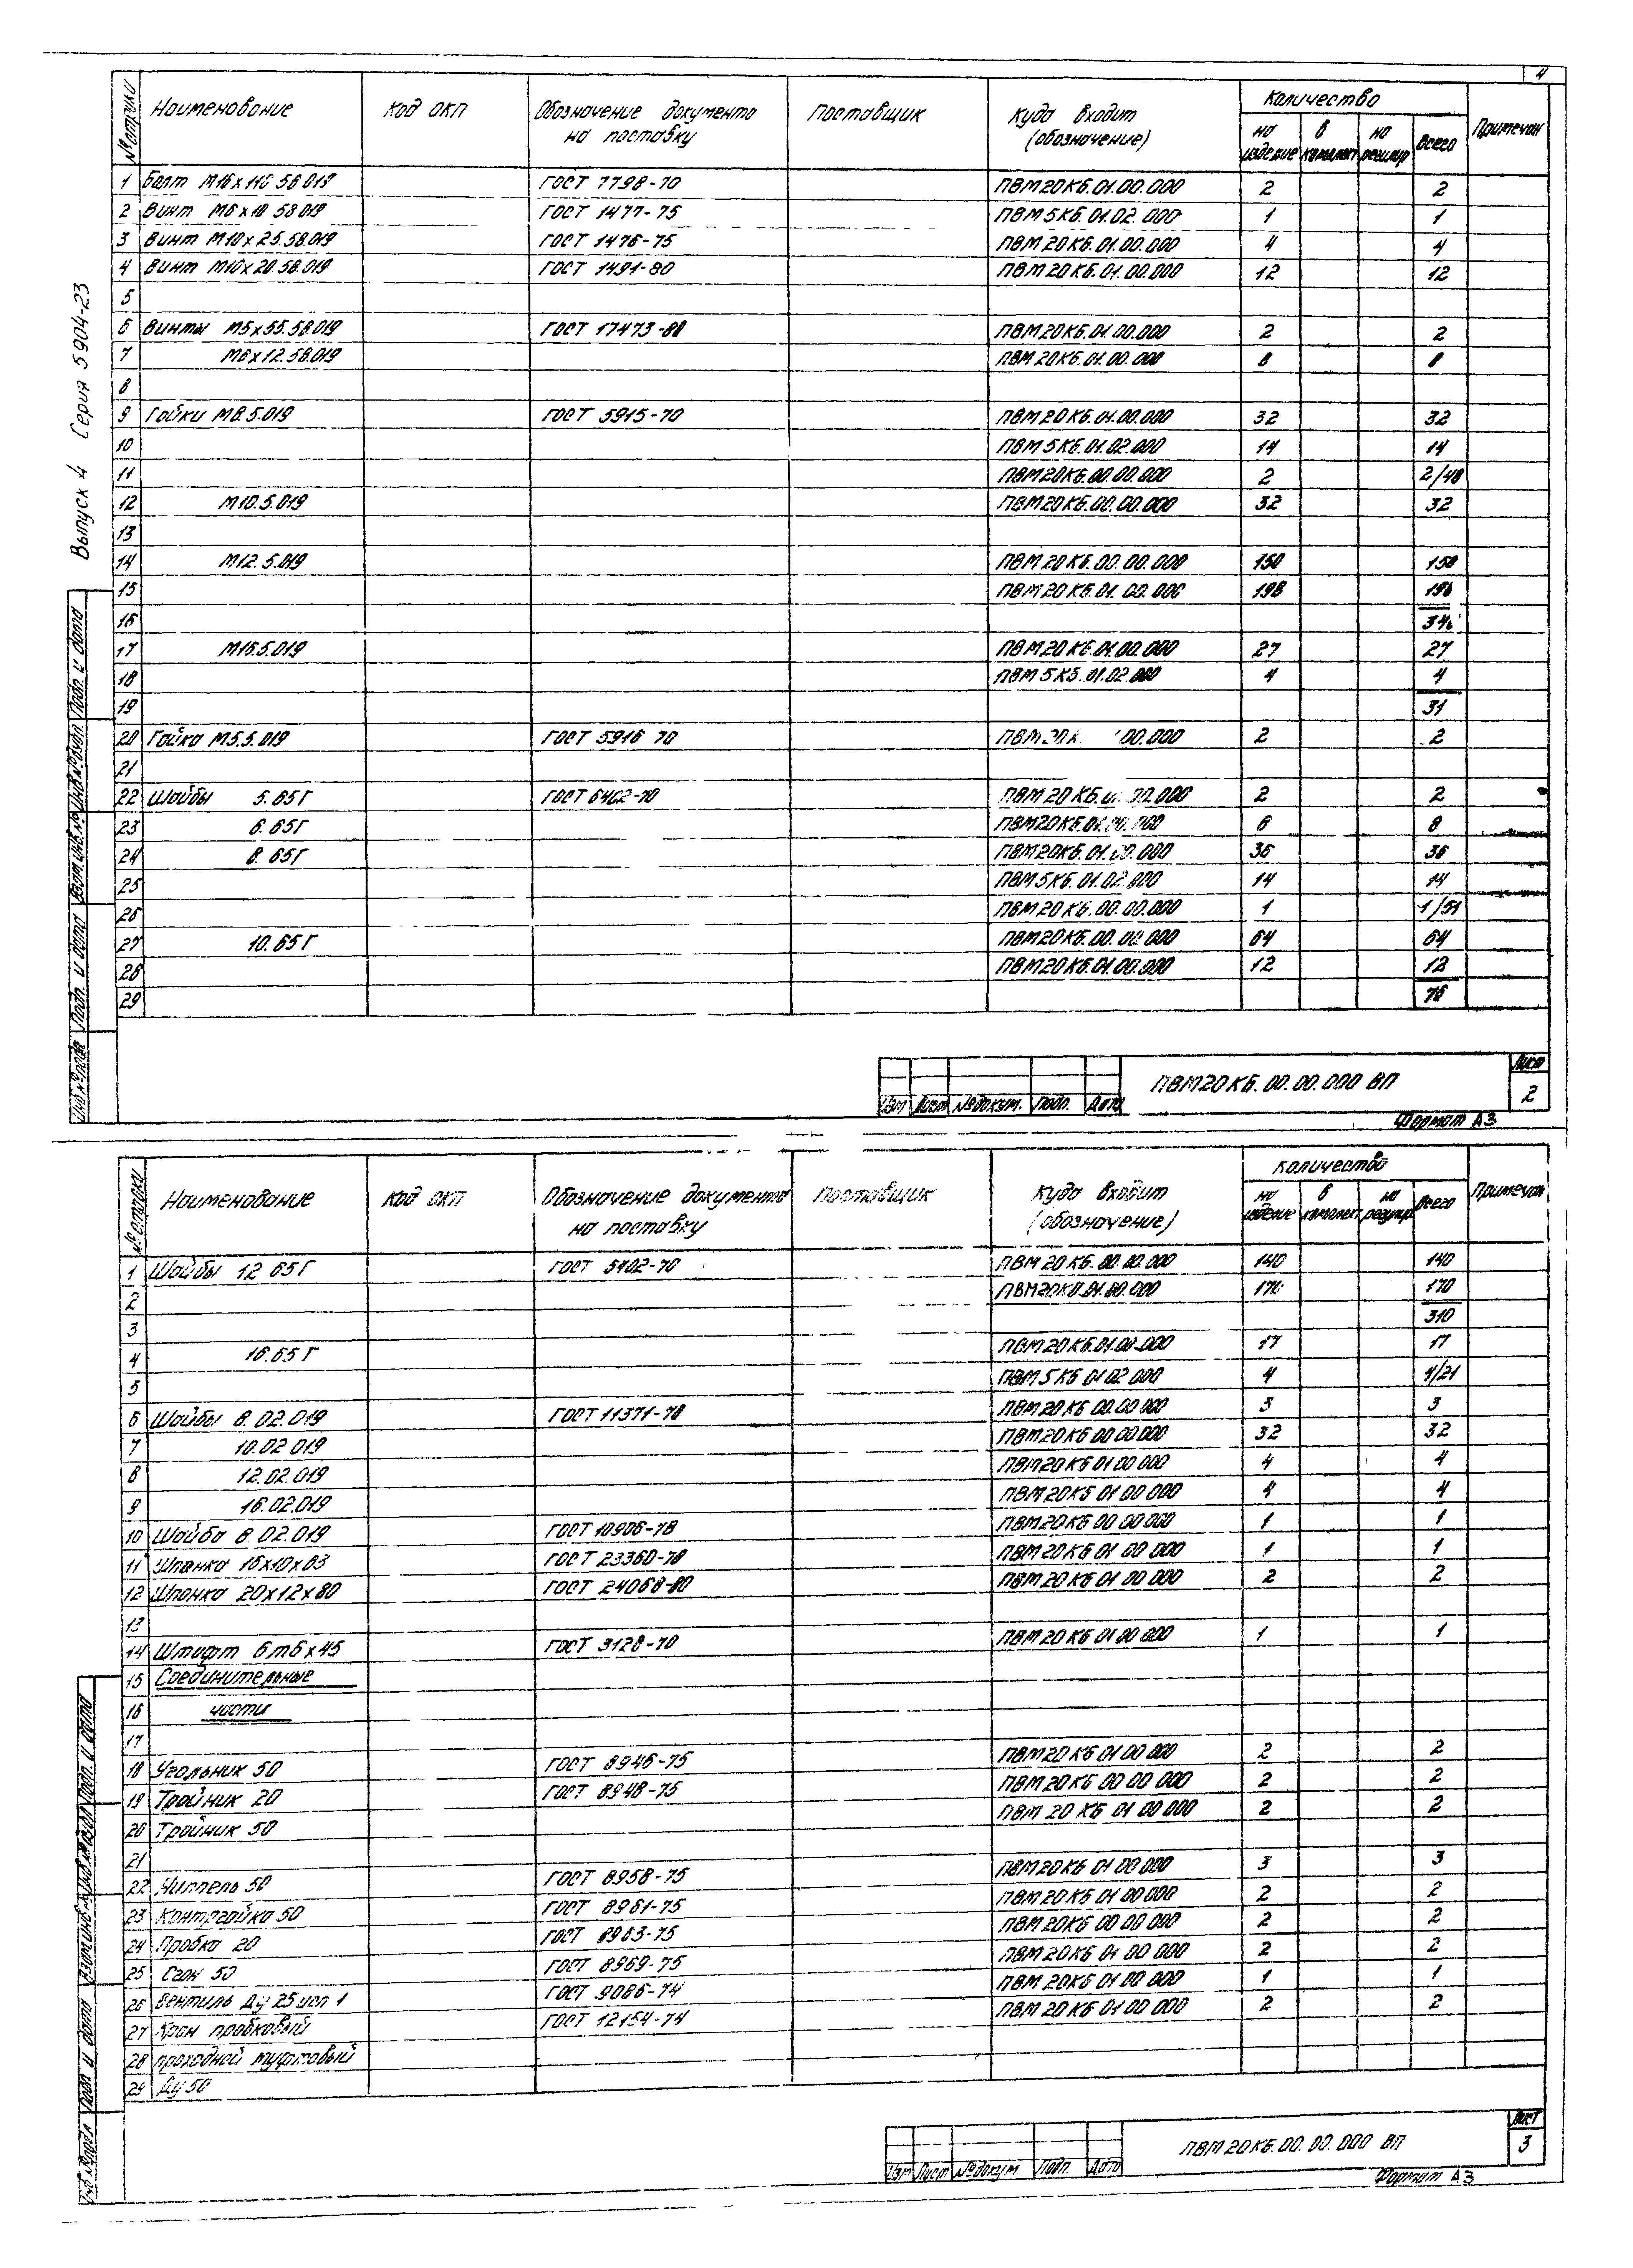 4
Выпуск 4 Серия 5904-23
№ строки Наименование Код ОКП Обозначение документа на поставку Поставщик Куда входит (обозначение) Количество на изделие в комплект на регулир Всего Примечан
1 Болт М16х110 58 019 ГОСТ 7798-70 ПВМ20КБ.01.00.000 2 2
2 Винт М6х10 58 019 ГОСТ 1477-75 ПВМ5КБ.01.02.000 1 1
3 Винт М10х25.58.019 ГОСТ 1476-75 ПВМ20КБ.01.00.000 4 4
4 Винт М10х20.58.019 ГОСТ 1491-80 ПВМ20КБ.01.00.000 12 12
5
6 Винты М5х55.58.019 ГОСТ 17473-80 ПВМ20КБ.01.00.000 2 2
7 М6х12.58.019 ПВМ20КБ.01.00.000 8 8
8
9 Гайки М8.5.019 ГОСТ 5915-70 ПВМ20КБ.01.00.000 32 32
10 ПВМ5КБ.01.02.000 14 14
11 ПВМ20КБ.00.00.000 2 2/48
12 М10.5.019 ПВМ20КБ.00.00.000 32 32
13
14 М12.5.019 ПВМ20КБ.00.00.000 150 150
15 ПВМ20КБ.01.00.000 198 198
16
17 М16.5.019 ПВМ20КБ.01.00.000 27 27
18 ПВМ5КБ.01.02.000 4 4
19 31
20 Гайка М5.5.019 ГОСТ 5916 70 00.000 2 2
21
22 Шайбы 5.65Г ГОСТ 6402-70 ПВМ20КБ. 2 2
23 6.65Г ПВМ20КБ.01. 8
24 8.65Г ПВМ20КБ.01.00.000 36 36
25 ПВМ5КБ.01.02.000 14 14
26 ПВМ20КБ.00.00.000 1 1/51
27 10.65Г ПВМ20КБ.00.00.000 64 64
28 ПВМ20КБ.01.00.000 12 12
29 76
Инв № подл Подп. и дата Взам.инв.№ Инв.№дубл. Подп. и дата
Изм Лист № докум. Подп. Дата
ПВМ20КБ.00.00.000 ВП
Лист 2
Формат А3
№ строки Наименование Код ОКП Обозначение документа на поставку Поставщик Куда входит (обозначение) Количество на изделие в комплект на регулир Всего Примечан
1 Шайбы 12 65Г ГОСТ 6402-70 ПВМ20КБ.00.00.000 140 140
2 ПВМ20КБ.01.00.000 170 170
3 310
4 16.65Г ПВМ20КБ.01.00.000 17 17
5 ПВМ5КБ 01 02 000 4 4/21
6 Шайбы 8.02.019 ГОСТ 11371-78 ПВМ20КБ 00.00 000 3 3
7 10.02 019 ПВМ20КБ 00 00 000 32 32
8 12.02.019 ПВМ20КБ 01 00 000 4 4
9 16.02.019 ПВМ20КБ 01 00 000 4 4
10 Шайба 8.02.019 ГОСТ 10906-78 ПВМ20КБ 00 00 000 1 1
11 Шпонка 16х10х63 ГОСТ 23360-78 ПВМ20КБ 01 00 000 1 1
12 Шпонка 20х12х80 ГОСТ 24068-80 ПВМ20КБ 01 00 000 2 2
13
14 Штифт 6т6х45 ГОСТ 3128-70 ПВМ20КБ 01 00 000 1 1
15 Соединительные
16 части
17
18 Угольник 50 ГОСТ 8946-75 ПВМ20КБ 01 00 000 2 2
19 Тройник 20 ГОСТ 8948-75 ПВМ20КБ 00 00 000 2 2
20 Тройник 50 ПВМ 20 КБ 01 00 000 2 2
21
22 Ниппель 50 ГОСТ 8958-75 ПВМ20КБ 01 00 000 3 3
23 Контргайка 50 ГОСТ 8961-75 ПВМ20КБ 01 00 000 2 2
24 Пробка 20 ГОСТ 8963-75 ПВМ20КБ 00 00 000 2 2
25 Сгон 50 ГОСТ 8969-75 ПВМ20КБ 01 00 000 2 2
26 Вентиль Ду 25 исп 1 ГОСТ 9086-74 ПВМ20КБ 01 00 000 1 1
27 Кран пробковый ГОСТ 12154-74 ПВМ20КБ 01 00 000 2 2
28 проходной муфтовый
29 Ду 50
Инв №подл Подп и дата Взам инв № Инв №дубл Подп. и дата
Изм Лист № докум Подп Дата
ПВМ20КБ.00.00.000 ВП
Лист 3
Формат А3